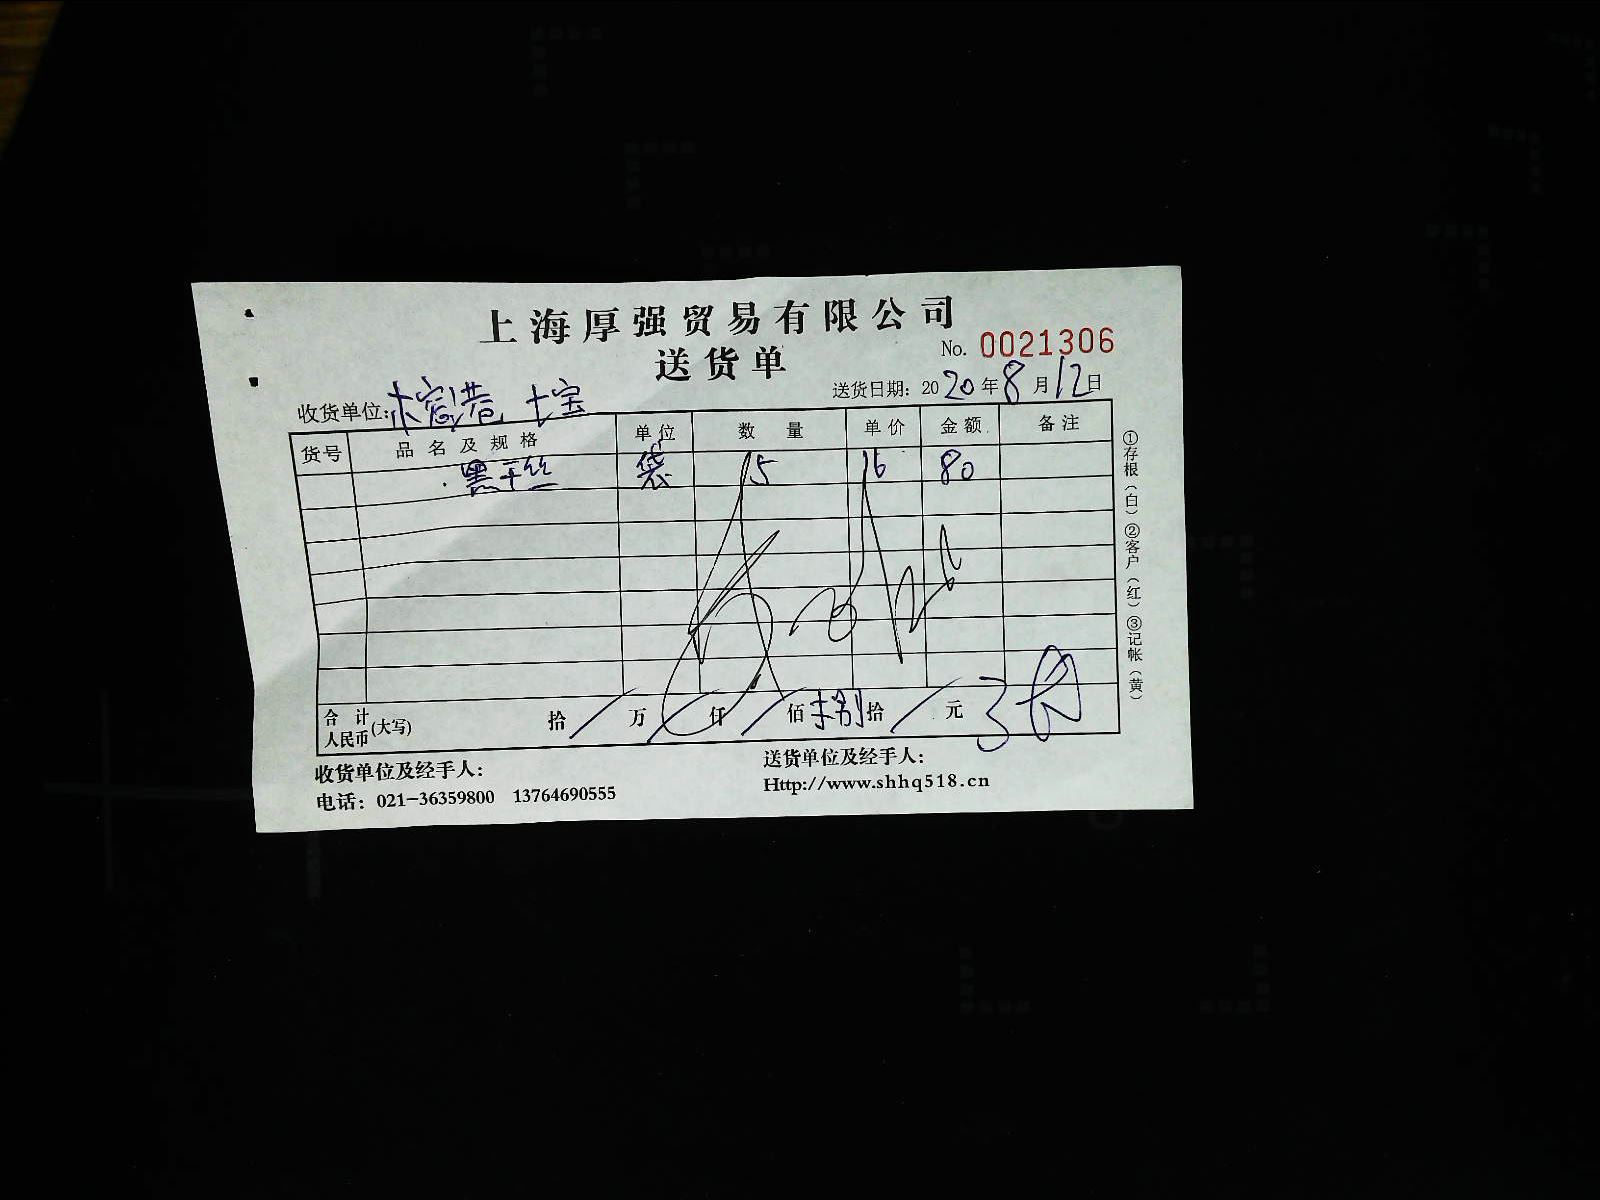 上海厚强贸易有限公司
送货单
No. 0021306
送货日期: 2020年8月12日
收货单位:
货号 品名及规格 单位 数量 单价 金额 备注
黑干丝 袋 5 16 80
合计人民币(大写) 拾/万/仟/佰 捌拾/元
收货单位及经手人:
送货单位及经手人:
电话: 021-36359800 13764690555
Http://www.shhq518.cn
①存根(白) ②客户(红) ③记帐(黄)